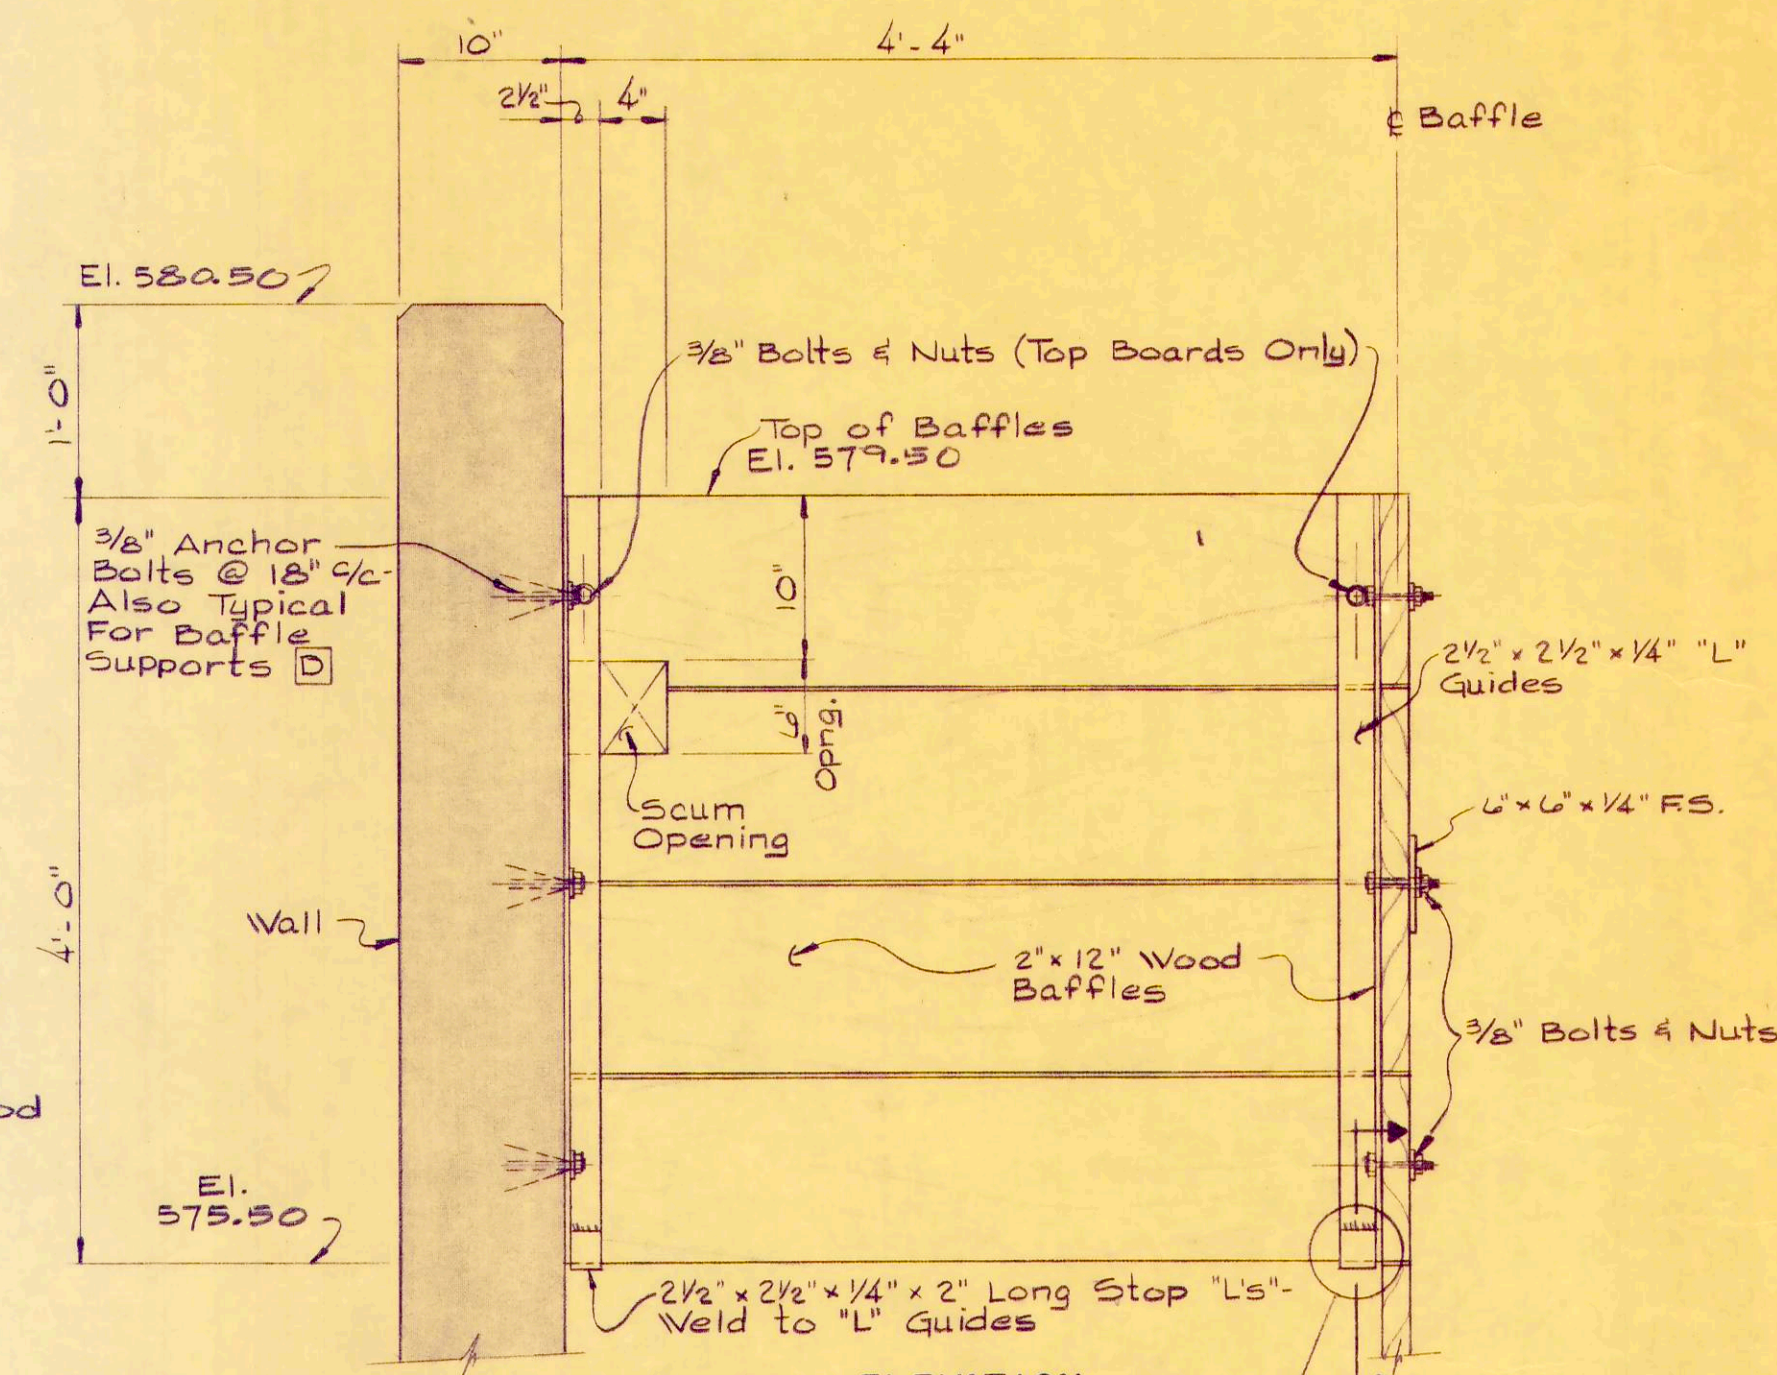 10"
4'-4"
2½"
4"
℄ Baffle
El. 580.50
3/8" Bolts & Nuts (Top Boards Only)
1'-0"
Top of Baffles
El. 579.50
3/8" Anchor
Bolts @ 18" c/c-
Also Typical
For Baffle
Supports D
10"
2½" x 2½" x ¼" "L"
Guides
6"
Opng.
Scum
Opening
6" x 6" x ¼" F.S.
4'-0"
Wall
2" x 12" Wood
Baffles
3/8" Bolts & Nuts
od
El.
575.50
2½" x 2½" x ¼" x 2" Long Stop "L's"-
Weld to "L" Guides